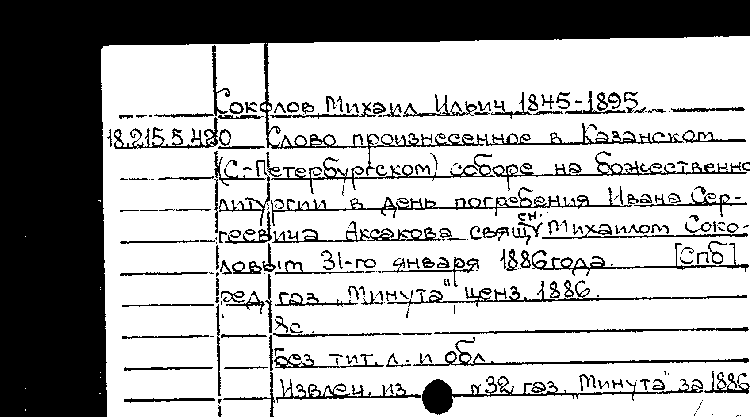 Соколов, Михаил Ильич, 1845-1895.
18.215.5.420 Слово произнесенное в Казанском
(С.-Петербургском) соборе на божественно
литургии в день погребения Ивана Сер-
геевича Аксакова свящ. Михаилом Соко-
ловым 31-го января 1886 года. [Спб]
ред. газ. "Минута" ценз. 1886.
8с.
Без тит. л. и обл.
Извлеч. из №32 газ. "Минута" за 1886